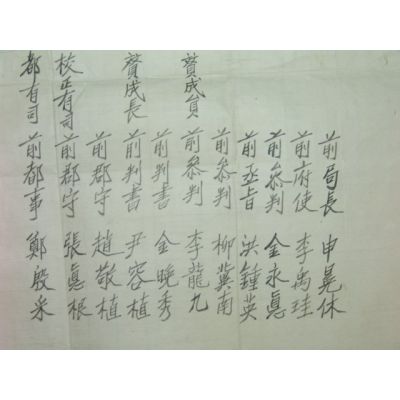 前局長 申晃休
前府使 李禹珪
前叅判 金永悳
前丞旨 洪鍾英
前叅判 柳冀南
賛成員 前叅判 李龍九
前判書 金晩秀
賛成長 前判書 尹容植
前郡守 趙敬植
校正有司 前郡守 張悳根
都有司 前都事 鄭殷采